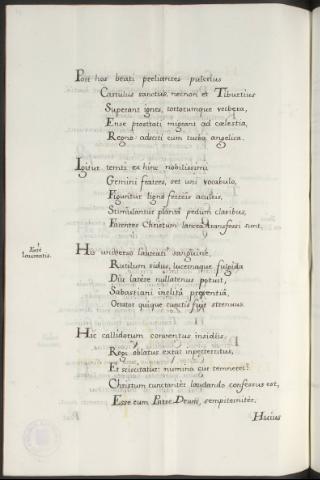 Post hos beati preliantes pulcrius
Castulus sanctus, necnon et Tiburtius
Superant ignes, tortorumque verbera,
Ense prostrati migrant ad cœlestia,
Regno adsciti cum turba angelica.
Igitur terni ex hinc nobilissimi
Gemini fratres, set uni vocabulo,
Figuntur ligno ferreis aculeis,
Stimulantur plantæ pedum clavibus,
Fatentes Christum lancea transfossi sunt.
His universo laureati sanguine,
Rutilum sidus, lucernaque fulgida
Diu latere nullatenus potuit,
Sabastiani inclita præsentia,
Orator quique cunctis fuit strenuus.
Hic callidorum conventus insidiis,
Regi oblatus extat imperterritus,
Et sciscitatur: numina cur temneret?
Christum cunctantes laudando confessus est,
Esse cum Patre Deum, sempiternitèr.
Huius